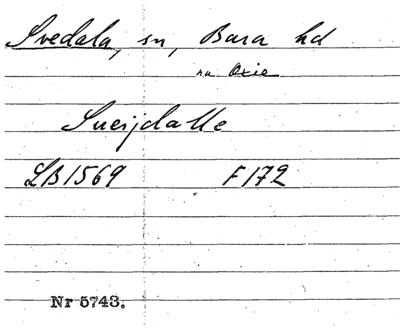 Svedala, sn, Bara hd
nu Oxie
Sueijdalle
LB1569 F172
Nr 5743.